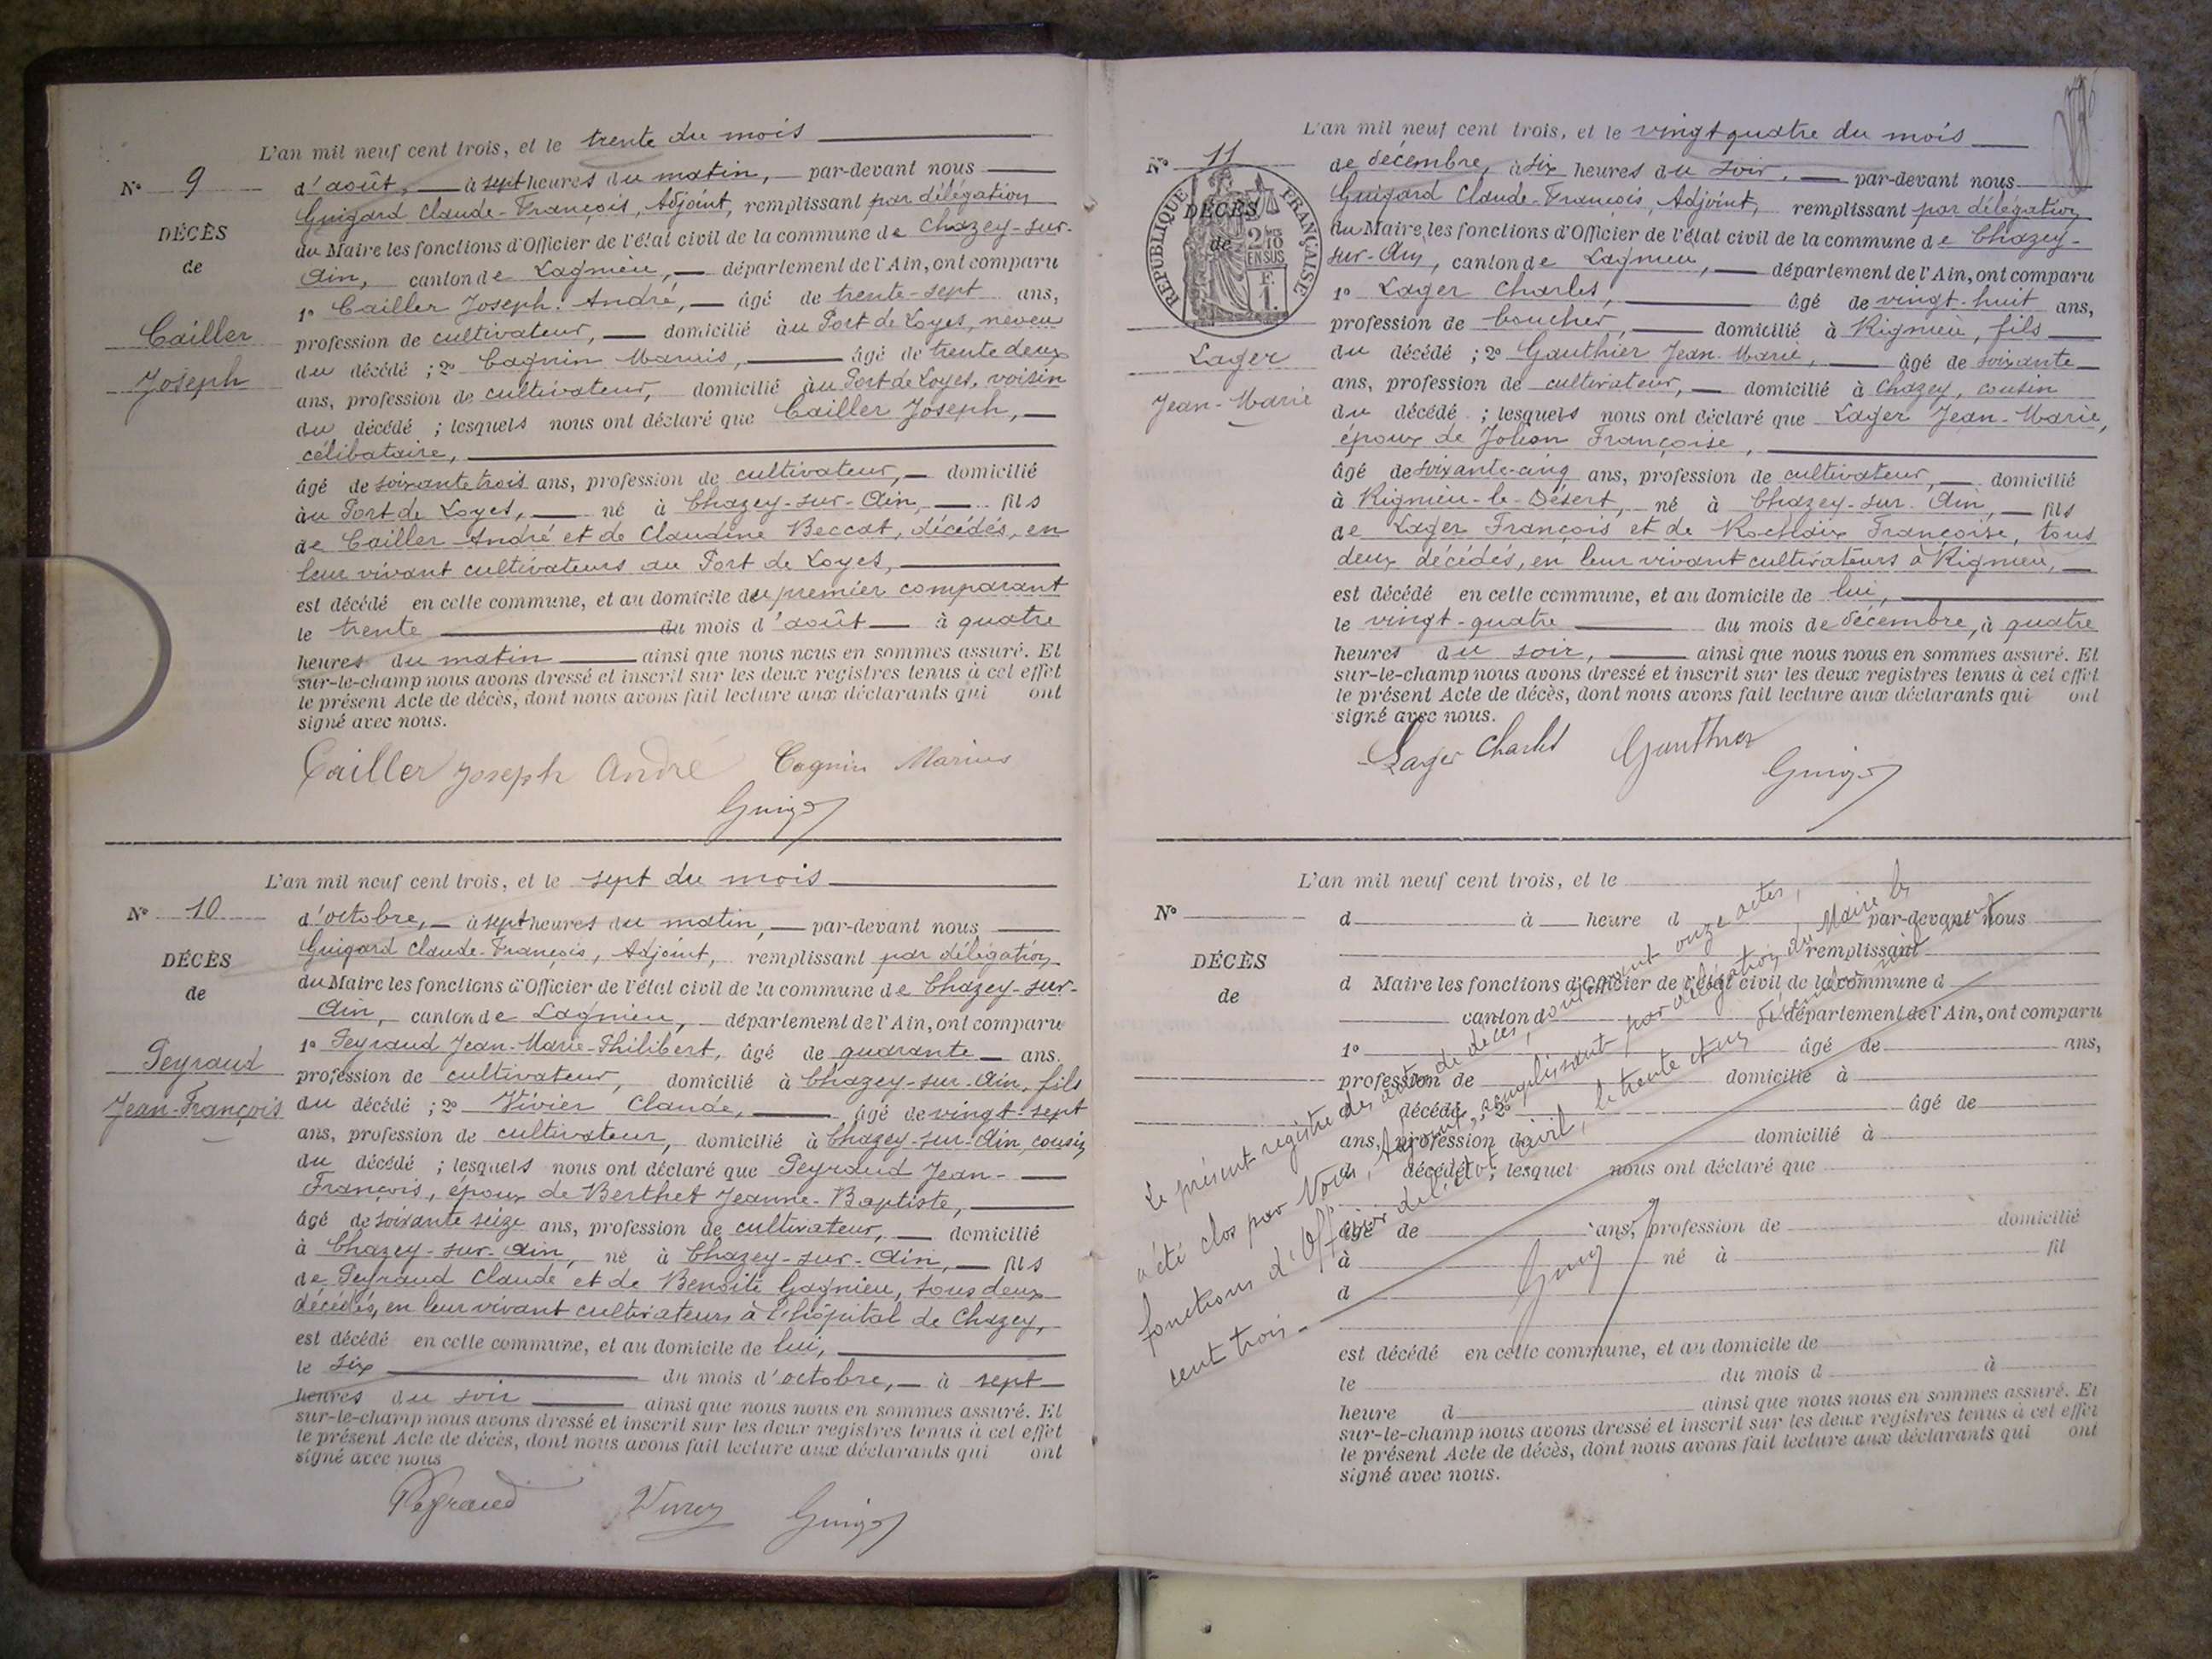 L'an mil neuf cent trois, et le trente du mois
N° 9
d'août, à sept heures du matin, par-devant nous
Guigard Claude-François, Adjoint, remplissant par délégation
DÉCÈS
du Maire les fonctions d'Officier de l'état civil de la commune de Chazey-sur-
de
Ain, canton de Lagnieu, département de l'Ain, ont comparu
1° Cailler Joseph. André, âgé de trente-sept ans,
Cailler
profession de cultivateur, domicilié au Port de Loyes, neveu
du décédé ; 2° Cagnin Marius, âgé de trente deux
Joseph
ans, profession de cultivateur, domicilié au Port de Loyes, voisin
du décédé ; lesquels nous ont déclaré que Cailler Joseph,
célibataire,
âgé de soixante trois ans, profession de cultivateur, domicilié
au Port de Loyes, né à Chazey-sur-Ain, fils
de Cailler André et de Claudine Beccat, décédés, en
leur vivant cultivateurs au Port de Loyes,
est décédé en cette commune, et au domicile du premier comparant
le trente du mois d'août à quatre
heures du matin ainsi que nous nous en sommes assuré. Et
sur-le-champ nous avons dressé et inscrit sur les deux registres tenus à cet effet
le présent Acte de décès, dont nous avons fait lecture aux déclarants qui ont
signé avec nous.
Cailler Joseph André Cagnin Marius
L'an mil neuf cent trois, et le sept du mois
N° 10
d'octobre, à sept heures du matin, par-devant nous
Guigard Claude-François, Adjoint, remplissant par délégation
DÉCÈS
du Maire les fonctions d'Officier de l'état civil de la commune de Chazey-sur-
de
Ain, canton de Lagnieu, département de l'Ain, ont comparu
1° Peyraud Jean-Marie-Philibert, âgé de quarante ans.
Peyraud
profession de cultivateur, domicilié à Chazey-sur-Ain, fils
Jean-François
du décédé ; 2° Vivier Claude, âgé de vingt-sept
ans, profession de cultivateur, domicilié à Chazey-sur-Ain, cousin
du décédé ; lesquels nous ont déclaré que Peyraud Jean-
François, époux de Berthet Jeanne-Baptiste,
âgé de soixante seize ans, profession de cultivateur, domicilié
à Chazey-sur-Ain, né à Chazey-sur-Ain, fils
de Peyraud Claude et de Benoîte Gagnieu, tous deux
décédés, en leur vivant cultivateurs à l'hôpital de Chazey,
est décédé en cette commune, et au domicile de lui,
le six du mois d'octobre, à sept
heures du soir ainsi que nous nous en sommes assuré. Et
sur-le-champ nous avons dressé et inscrit sur les deux registres tenus à cet effet
le présent Acte de décès, dont nous avons fait lecture aux déclarants qui ont
signé avec nous
Peyraud
L'an mil neuf cent trois, et le vingt quatre du mois
N° 11
de décembre, à six heures du soir, par-devant nous
Guigard Claude-François, Adjoint, remplissant par délégation
RÉPUBLIQUE FRANÇAISE
2/10 EN SUS
F. 1.
DÉCÈS
de
du Maire, les fonctions d'Officier de l'état civil de la commune de Chazey-
sur-Ain, canton de Lagnieu, département de l'Ain, ont comparu
1° Lager Charles, âgé de vingt-huit ans,
profession de boucher, domicilié à Rignieu, fils
Lager
du décédé ; 2° Gauthier Jean-Marie, âgé de soixante
Jean-Marie
ans, profession de cultivateur, domicilié à Chazey, cousin
du décédé ; lesquels nous ont déclaré que Lager Jean-Marie,
époux de Françoise,
âgé de soixante-cinq ans, profession de cultivateur, domicilié
à Rignieu-le-Désert, né à Chazey-sur-Ain, fils
de Lager François et de Rochaix Françoise, tous
deux décédés, en leur vivant cultivateurs à Rignieu,
est décédé en cette commune, et au domicile de lui,
le vingt-quatre du mois de décembre, à quatre
heures du soir, ainsi que nous nous en sommes assuré. Et
sur-le-champ nous avons dressé et inscrit sur les deux registres tenus à cet effet
le présent Acte de décès, dont nous avons fait lecture aux déclarants qui ont
signé avec nous.
Lager Charles Gauthier
L'an mil neuf cent trois, et le
N°
d à heure d par-devant nous
remplissant
DÉCÈS
d Maire les fonctions d'Officier de l'état civil de la commune d
de
canton d département de l'Ain, ont comparu
1° âgé de ans,
profession de domicilié à
d décédé ; 2° âgé de
ans, profession d domicilié à
d décédé ; lesquel nous ont déclaré que
âgé de ans, profession de domicilié
à né à fil
d
est décédé en cette commune, et au domicile de
le du mois d à
heure d ainsi que nous nous en sommes assuré. Et
sur-le-champ nous avons dressé et inscrit sur les deux registres tenus à cet effet
le présent Acte de décès, dont nous avons fait lecture aux déclarants qui ont
signé avec nous.
Le présent registre des actes de décès, contenant onze actes,
a été clos par Nous, Adjoint, remplissant par délégation du Maire les
fonctions d'Officier de l'état civil, le trente et un décembre mil neuf
cent trois.